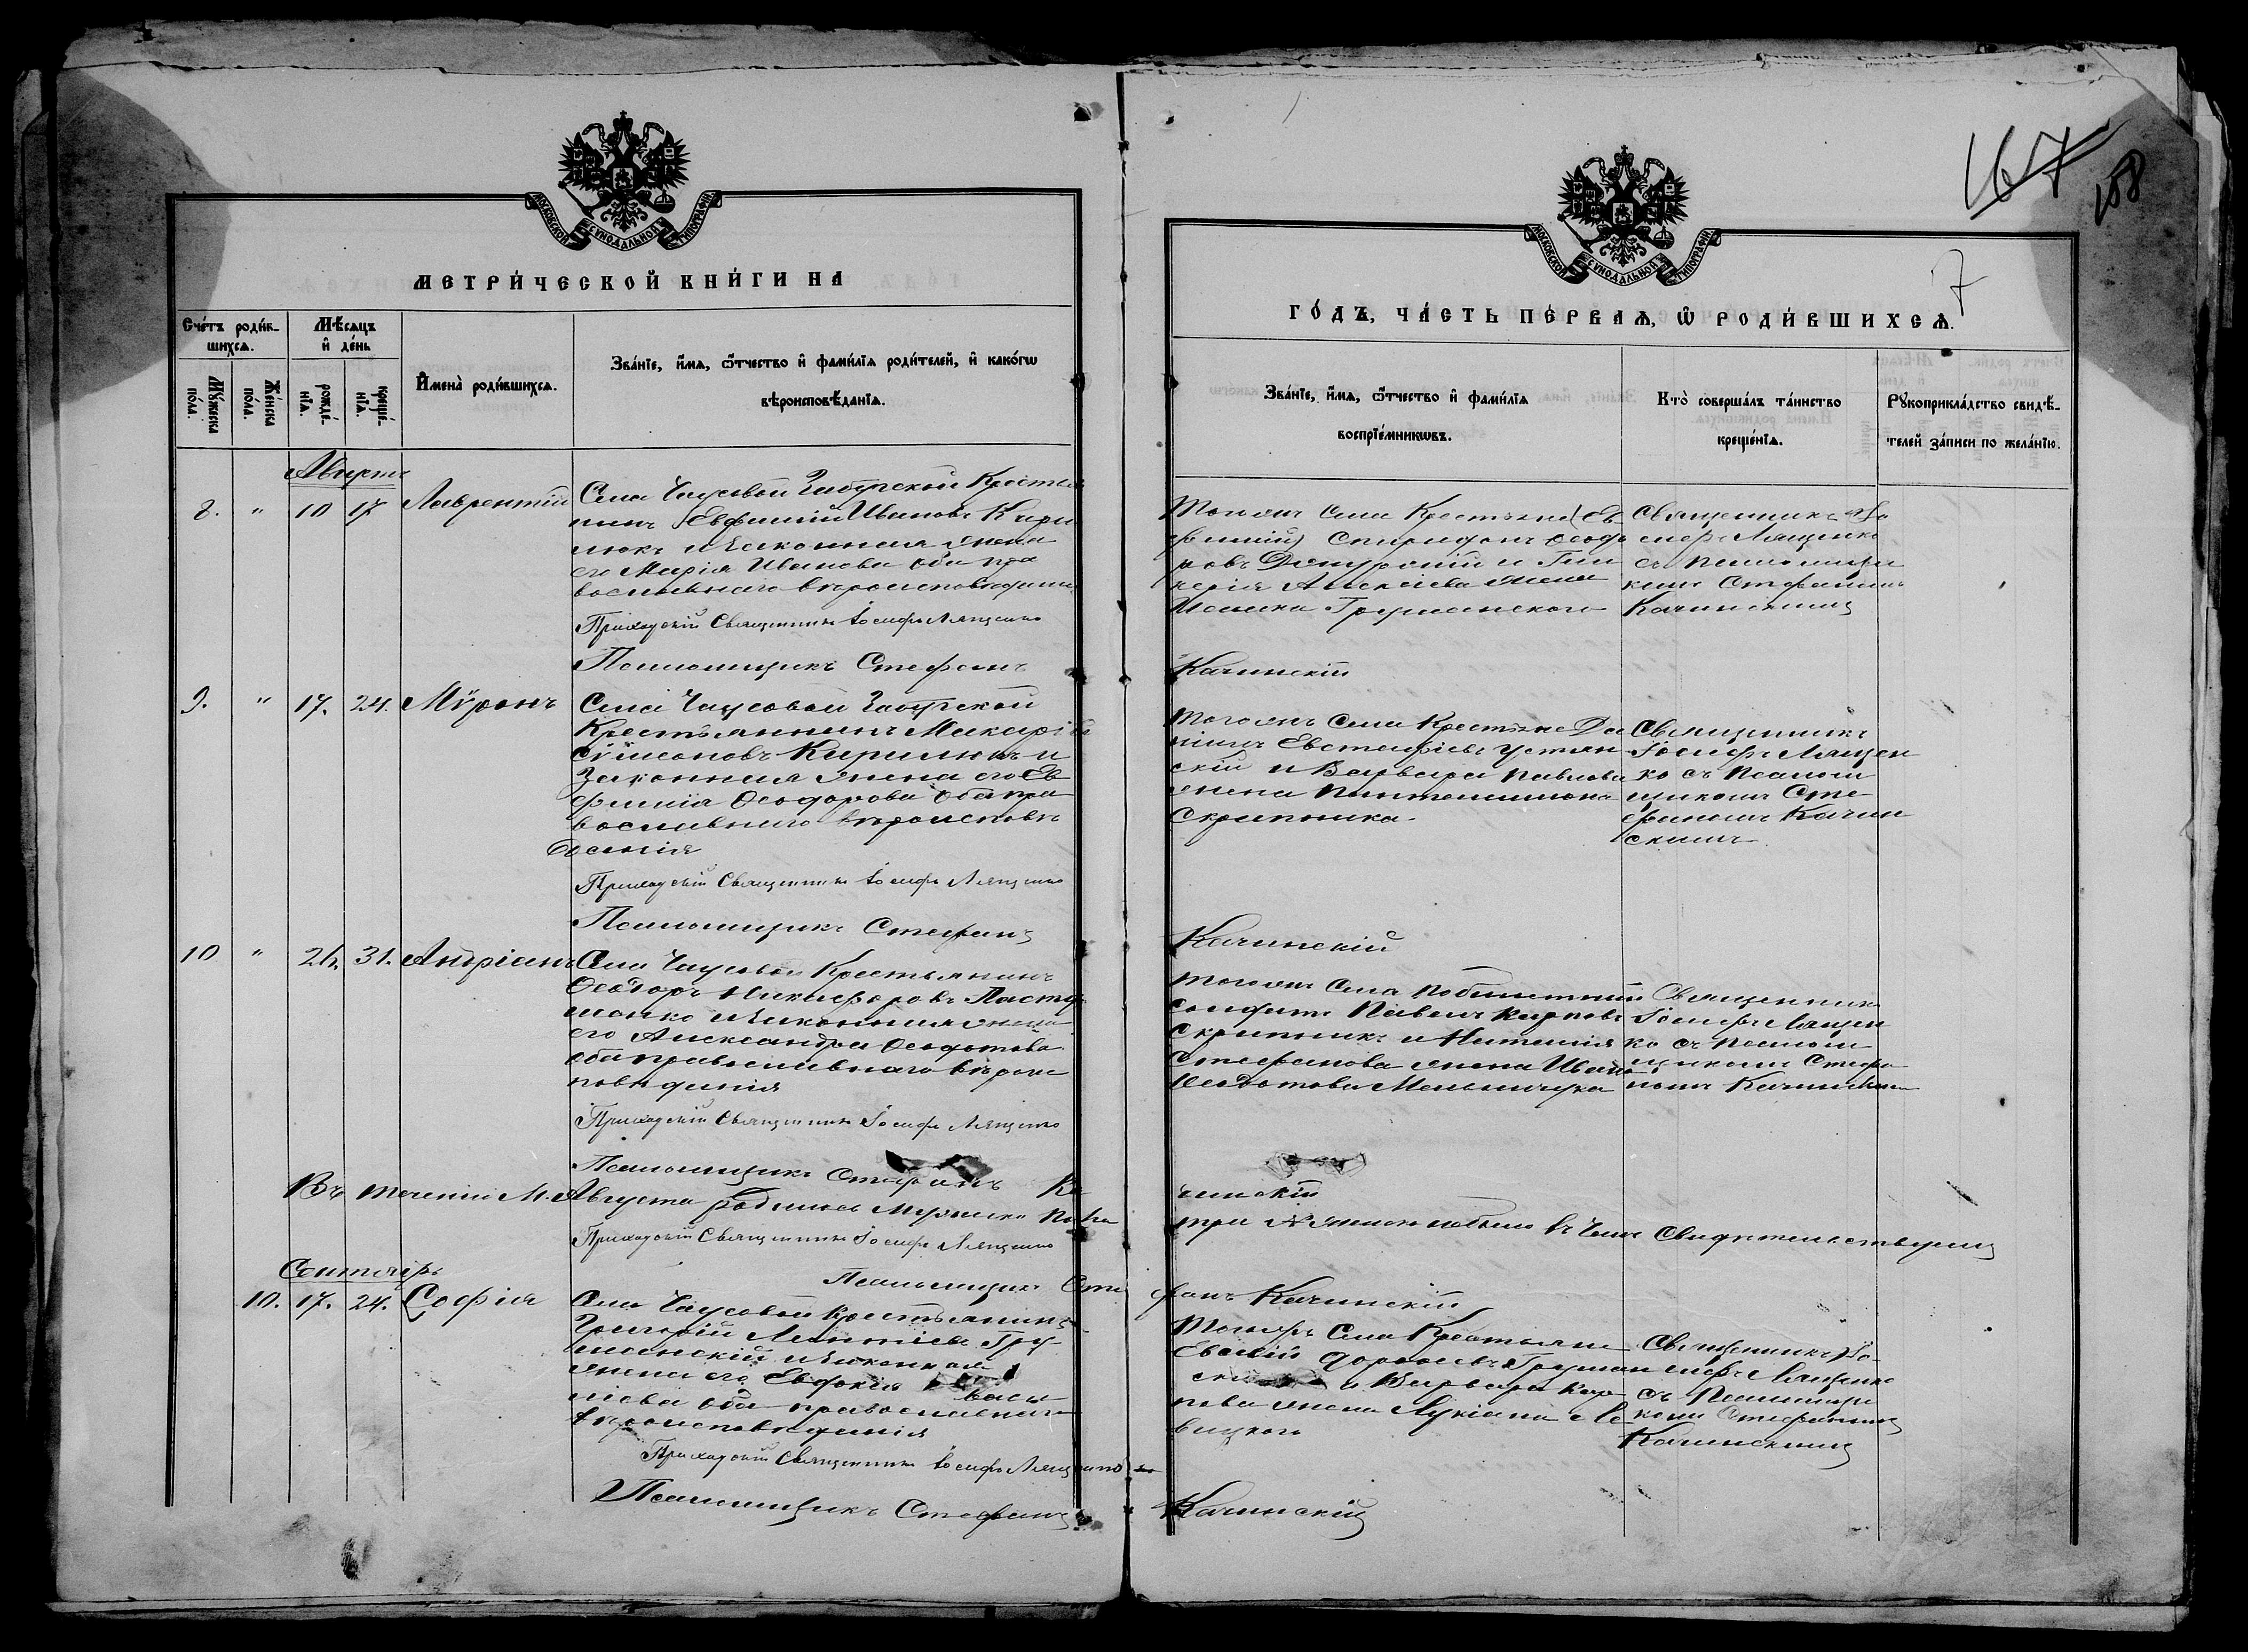 МОСКОВСКОЙ СѴНОДАЛЬНОЙ ТИПОГРАФІИ
МЕТРИ́ЧЕСКОЙ КНИ́ГИ НА
Сче́тъ роди́в-
шихсѧ.
Мѣ́сѧцъ
и҆ де́нь
Мꙋ́жеска
по́ла.
Же́нска
по́ла.
рожде́-
нїѧ.
креще́-
нїѧ.
И҆мена̀ роди́вшихсѧ.
Зва́нїе, и҆́мѧ, ѻ҆́тчество и҆ фами́лїѧ роди́телей, и҆ како́гѡ
вѣроисповѣ́данїѧ.
Августъ
8. " 10 17 Лаврентій
Села Чаусовой Крестья
нинъ Евфимій Ивановъ Кири
люкъ и законная жена
его Марія Иванова оба пра
вославнаго вѣроисповѣданія
Приходскій Священникъ Іосифъ Лященко
Псаломщикъ Стефанъ
9. " 17. 24. Мѵронъ
Села Чаусовой
Крестьянинъ Макарій
Сѵмеоновъ Кирилюкъ и
законная жена его Ев
фимія Ѳеодорова оба пра
вославнаго вѣроисповѣ
данія
Приходскій Священникъ Іосифъ Лященко
Псаломщикъ Стефанъ
10 " 26. 31. Андріанъ
Села Чаусовой Крестьянинъ
Ѳеодоръ Никифоровъ
и законная жена
его Александра Ѳеодотова
оба православнаго вѣроис
повѣданія
Приходскій Священникъ Іосифъ Лященко
Псаломщикъ Стефанъ Ка
Въ теченіи М. Августа родилось мужеска пола
Приходскій Священникъ Іосифъ Лященко
Псаломщикъ Сте
Сентябрь
10. 17. 24. Софія
Села Чаусовой Крестьянинъ
Григорій Леонтіевъ Гру
манскій и законная
жена его Евдокія Васи
ліева оба православнаго
вѣроисповѣданія
Приходскій Священникъ Іосифъ Лященко
Псаломщикъ Стефанъ
167
158
7
МОСКОВСКОЙ СѴНОДАЛЬНОЙ ТИПОГРАФІИ
ГО́ДЪ, ЧА́СТЬ ПЕ́РВАѦ, Ѡ҆ РОДИ́ВШИХСѦ.
Зва́нїе, и҆́мѧ, ѻ҆́тчество и҆ фами́лїѧ
воспрїе́мникѡвъ.
Кто̀ соверша́лъ та́инство
креще́нїѧ.
Рꙋкоприкла́дство свидѣ́-
телей за́писи по жела́нїю.
Тогожъ села Крестьяне (Ев
фимій) Спиридонъ Ѳеодо
ровъ и Гли
керія Алексіева жена
Груманского
Священникъ Іо
сифъ Лященко
съ Псаломщи
комъ Стефаномъ
Качинскимъ
Качинскій
Тогожъ села Крестьяне Да
ніилъ Евстафіевъ Устян
скій и Варвара Павлова
жена Пантелимона
Скрипника.
Священникъ
Іосифъ Лящен
ко съ Псалом
щикомъ Сте
фаномъ Качин
скимъ
Качинскій
Тогожъ села
солдатъ Павелъ Карповъ
Скрипникъ и Наталія
Стефанова жена Ивана
Ѳеодотова Мельничука
Священникъ
Іосифъ Лящен
ко съ Псалом
щикомъ Стефа
номъ Качинскимъ
чинскій
три женска небыло въ чемъ Свидѣтельствуемъ
фанъ Качинскій
Тогожъ села Крестьяне
Евсевій Груман
скій и Варвара Кар
пова жена Лукіана Ле
вицкого
Священникъ Іо-
сифъ Лященко
съ Псаломщи
комъ Стефаномъ
Качинскимъ
Качинскій